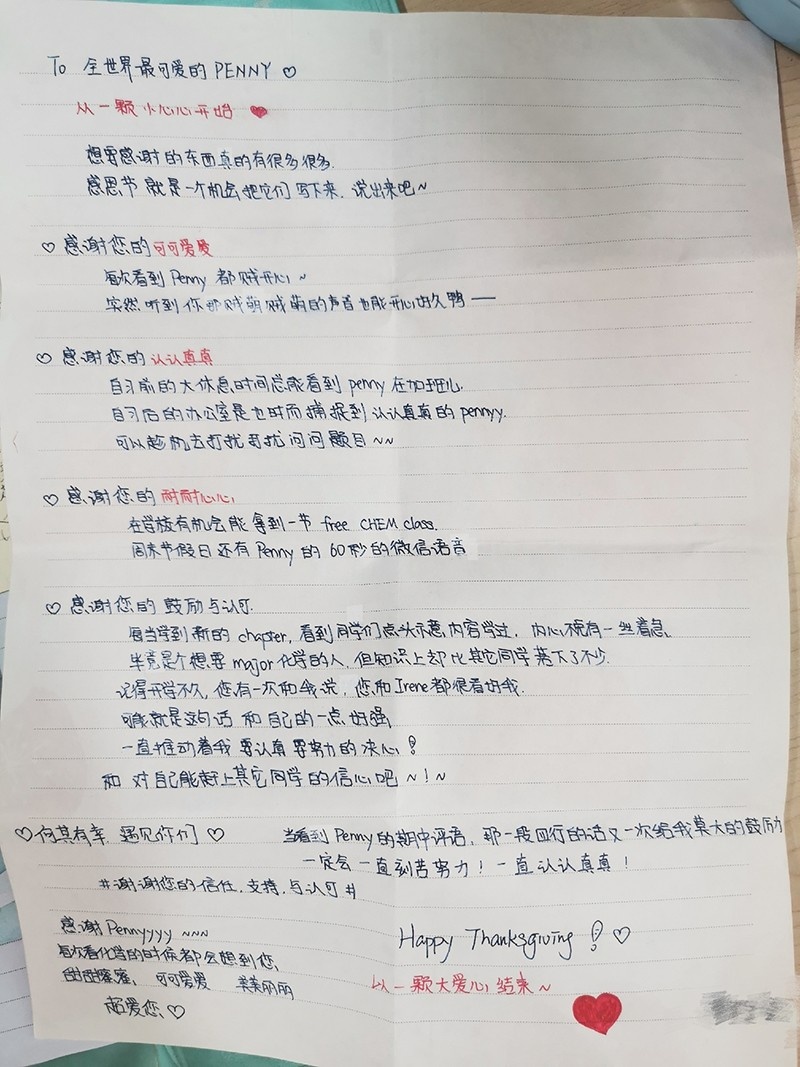 To 全世界最可爱的 PENNY ♡
从一颗小心心开始 ♥
想要感谢的东西真的有很多很多.
感恩节就是一个机会把它们写下来. 说出来吧~
♡ 感谢您的可可爱爱
每次看到 Penny 都贼开心~
突然听到你那贼萌贼萌的声音也能开心好久鸭——
♡ 感谢您的认认真真
自习前的大休息时间总能看到 penny 在加班儿.
自习后的办公室里也时而捕捉到认认真真的 pennyy.
可以趁机去打扰打扰问问题目~~
♡ 感谢您的耐耐心心
在学校有机会能拿到一节 free CHEM class.
周末节假日还有 Penny 的 60秒的微信语音
♡ 感谢您的鼓励与认可.
每当学到新的 chapter, 看到同学们点头示意内容学过, 内心不免有一丝着急,
毕竟是个想要 major 化学的人, 但知识上却比其它同学落下了不少.
记得开学不久, 您有一次和我说, 您和 Irene 都很看好我.
可能就是这句话 和自己的一点好强,
一直推动着我要认真要努力的决心!
和对自己能赶上其它同学的信心吧~!~
♡何其有幸, 遇见你们♡
当看到 Penny 的期中评语, 那一段四行的话又一次给我莫大的鼓励
一定会一直刻苦努力! 一直认认真真!
#谢谢您的信任, 支持, 与认可#
感谢 Pennyyyy ~~~
每次看化学的时候都会想到您,
甜甜蜜蜜, 可可爱爱 美美丽丽
超爱您♡
Happy Thanksgiving! ♡
以一颗大爱心结束~